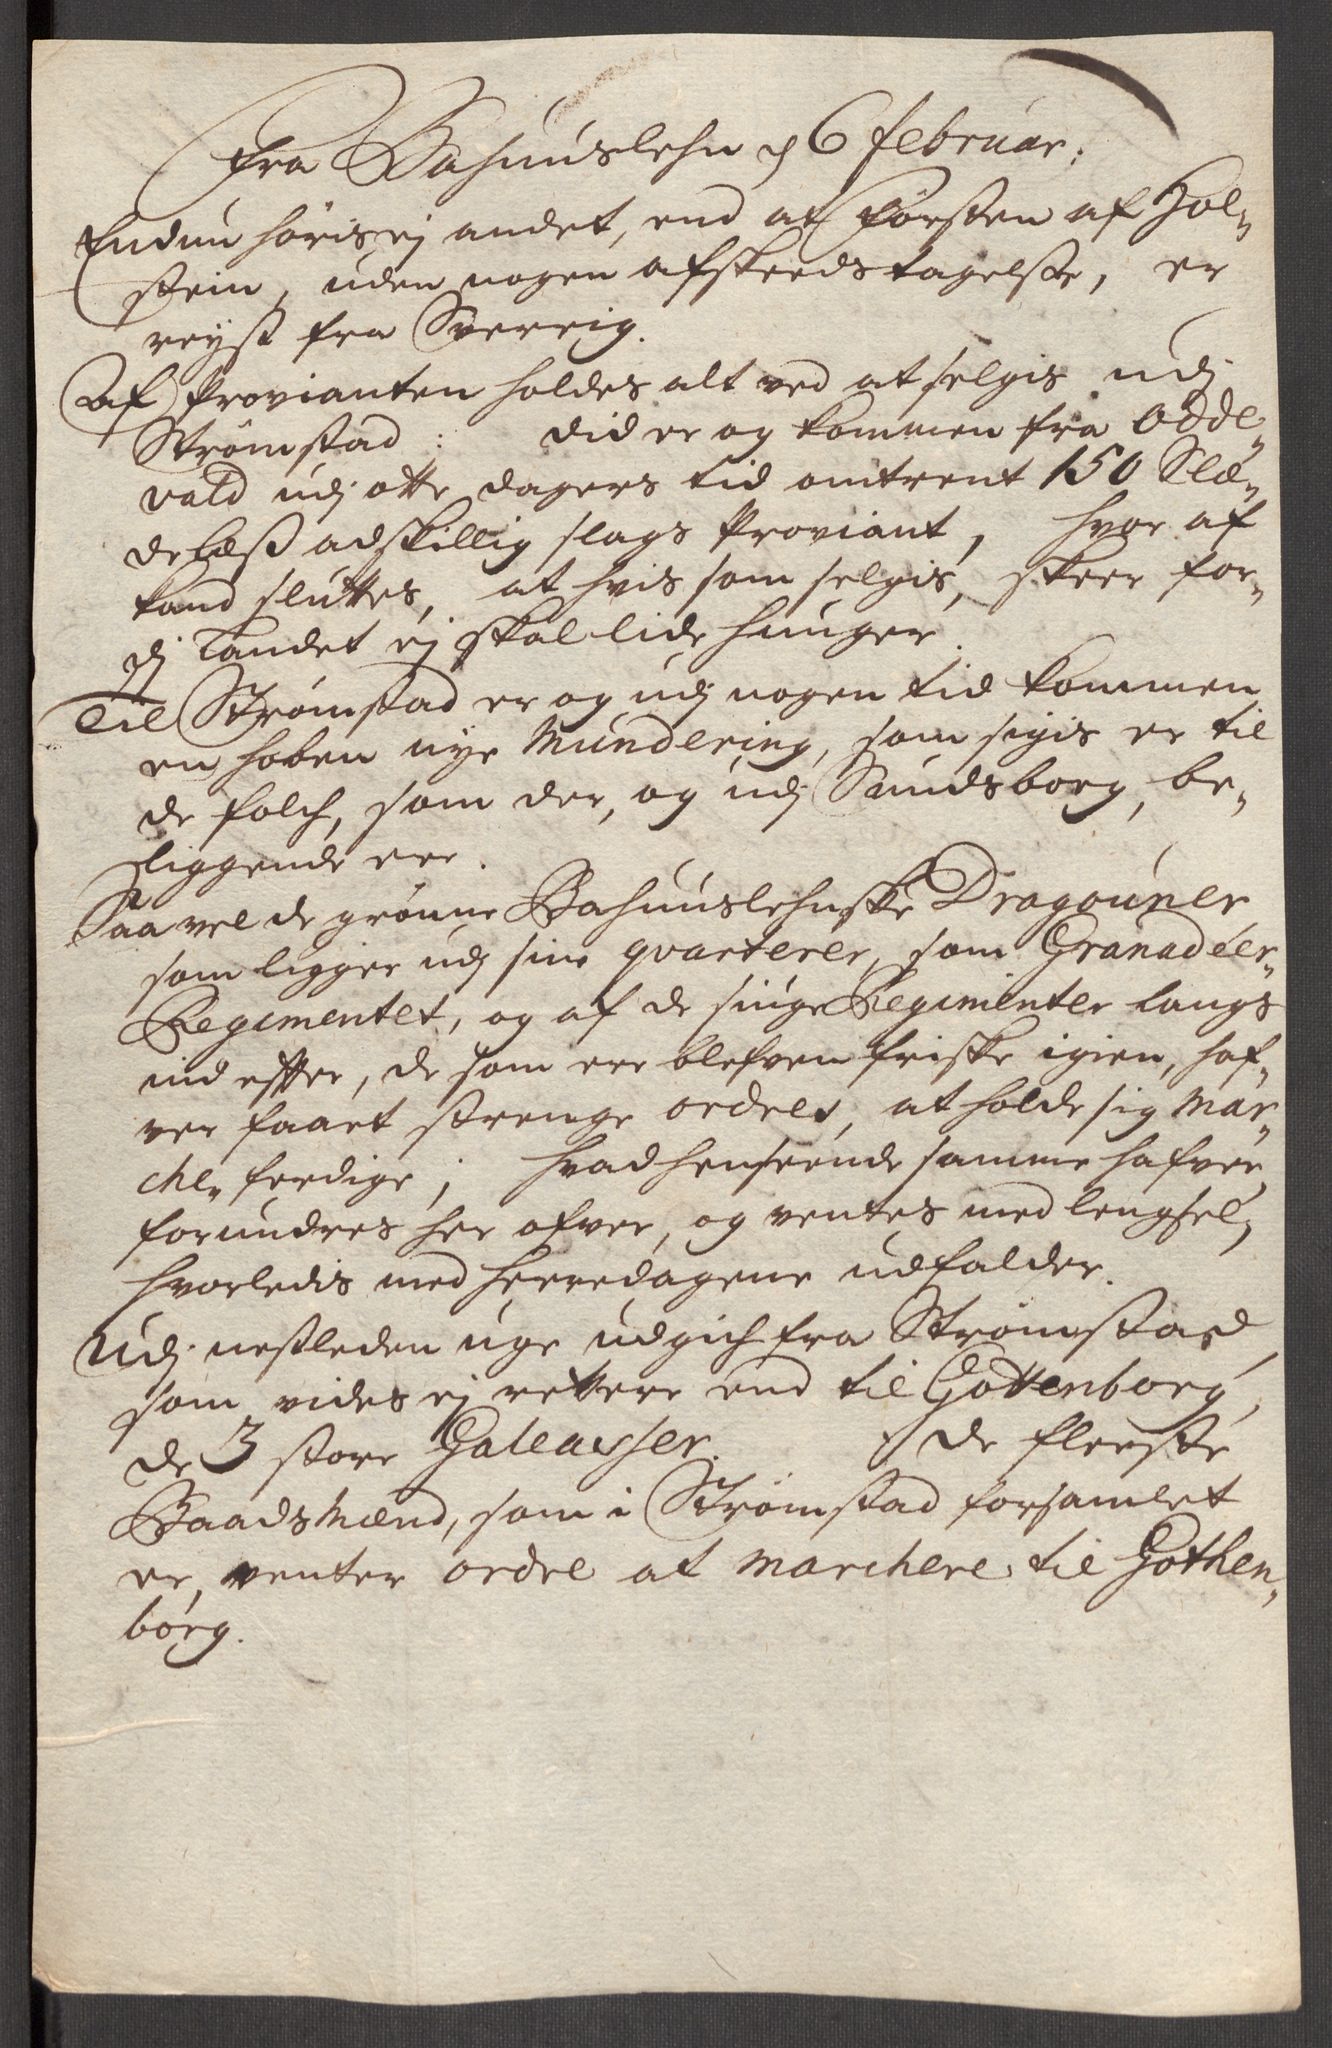 Fra Bahuuslehn d 6 februar:
Endnu høris ej andet, end at Førsten af Hol-
stein, uden nogen afskeeds tagelsse, er
reyst fra Sverrig.
Af Provianten holdes alt ved at selgis udj
Strømstad: did er og kommen fra Odde-
vald udj otte dagers tid omtrent 150 Slæ-
delæss adskillig slags Proviant, hvor af
kand sluttes, at hvis som selgis, skeer for-
dj Landet ej skal lide hunger.
Til Strømstad er og udj nogen tid kommen
en hoben nye Mundering, som sigis er til
de folch, som der, og udj Sundsborg, be-
liggende ere.
Saa vel de grønne Bahuuslehnske Dragouner
som ligger udj sine qvarterer, som Granadeer-
Regimentet, og af de siuge Regimenter langs
ind effter, de som ere blefven friske igien, haf-
ver faaet strenge ordres, at holde sig Mar-
che-ferdige; hvad henseende samme hafver
forundres her ofver, og ventes med lengsel,
hvorledis med herredagene udfalder.
Udj nestleden uge udgich fra Strømstad,
som vides ej rettere end til Gottenborg,
de 3 store Galeasser. de fleeste
Baadsmænd, som i Strømstad forsamlet
er, venter ordre at marchere til Gothen-
borg.